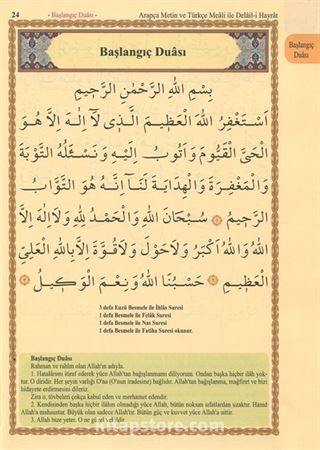 24
- Başlangıç Duâsı -
Arapça Metin ve Türkçe Meâli ile Delâil-i Hayrât
Başlangıç
Duâsı
Başlangıç Duâsı
بِسْمِ اللهِ الرَّحْمٰنِ الرَّحِيمِ
اَسْتَغْفِرُ اللهَ الْعَظِيمَ الَّذِى لَآ اِلٰهَ اِلَّا هُوَ
الْحَىَّ الْقَيُّومَ وَاَتُوبُ اِلَيْهِ وَنَسْئَلُهُ التَّوْبَةَ
وَالْمَغْفِرَةَ وَالْهِدَايَةَ لَنَا اِنَّهُ هُوَ التَّوَّابُ
الرَّحِيمُ سُبْحَانَ اللهِ وَالْحَمْدُ لِلّٰهِ وَلَا اِلٰهَ اِلَّا
اللهُ وَاللهُ اَكْبَرُ وَلَا حَوْلَ وَلَا قُوَّةَ اِلَّا بِاللهِ الْعَلِىِّ
الْعَظِيمِ حَسْبُنَا اللهُ وَنِعْمَ الْوَكِيلُ
3 defa Euzü Besmele ile İhlâs Suresi
1 defa Besmele ile Felâk Suresi
1 defa Besmele ile Nas Suresi
1 defa Besmele ile Fatiha Suresi okunur.
Başlangıç Duâsı
Rahman ve rahim olan Allah'ın adıyla.
1. Hatalarımı itiraf ederek yüce Allah'tan bağışlanmamı diliyorum. Ondan başka hiçbir ilâh yok-
tur. O diridir. Her şeyin varlığı O'na (O'nun iradesine) bağlıdır. Allah'tan bağışlanma, mağfiret ve bizi
hidayete erdirmesini dileriz.
Zira o, tövbeleri çokça kabul eden ve merhamet edendir.
2. Kendisinden başka hiçbir ilâhın olmadığı yüce Allah, bütün noksan sıfatlardan uzaktır. Hamd
Allah'a mahsustur. Büyük olan sadece Allah'tır. Bütün güç ve kuvvet yüce Allah'a aittir.
3. Allah bize yeter. O ne güzel vekildir.
kitapstore.com